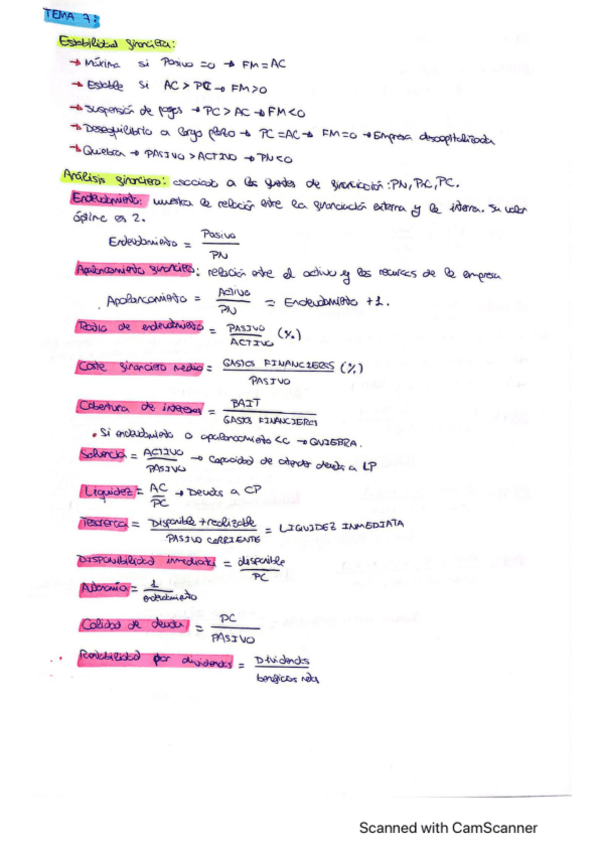 TEMA 7:
Estabilidad financiera:
→ Máxima si Pasivo = 0 → FM = AC
→ Estable si AC > PC → FM > 0
→ Suspensión de pagos → PC > AC → FM < 0
→ Desequilibrio a largo plazo → PC = AC → FM = 0 → Empresa descapitalizada
→ Quiebra → PASIVO > ACTIVO → PN < 0
Análisis financiero: asociado a las fuentes de financiación: PN, PNC, PC.
Endeudamiento: muestra la relación entre la financiación externa y la interna. Su valor
óptimo es 2.
Endeudamiento = Pasivo / PN
Apalancamiento financiero: relación entre el activo y los recursos de la empresa
Apalancamiento = Activo / PN = Endeudamiento + 1.
Ratio de endeudamiento = PASIVO / ACTIVO (%)
Coste financiero medio = GASTOS FINANCIEROS / PASIVO (%)
Cobertura de intereses = BAIT / GASTOS FINANCIEROS
• Si endeudamiento o apalancamiento < 0 → QUIEBRA.
Solvencia = ACTIVO / PASIVO → Capacidad de atender deuda a LP
Liquidez = AC / PC → Deuda a CP
Tesorería = Disponible + realizable / PASIVO CORRIENTE = LIQUIDEZ INMEDIATA
Disponibilidad inmediata = disponible / PC
Autonomía = 1 / endeudamiento
Calidad de deuda = PC / PASIVO
Rentabilidad por dividendos = Dividendos / beneficios neto
Scanned with CamScanner